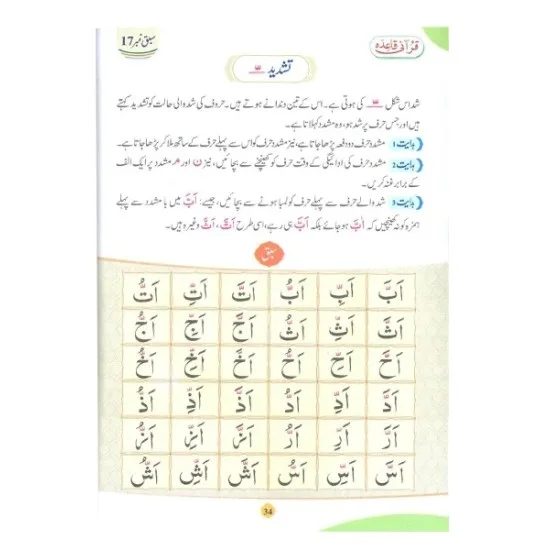 قرآنی قاعدہ
سبق نمبر 17
تشدید ـّـ
شد اس شکل ـّـ کی ہوتی ہے۔ اس کے تین دندانے ہوتے ہیں۔ حروف کی شد والی حالت کو تشدید کہتے
ہیں اور جس حرف پر شد ہو، وہ مشدد کہلاتا ہے۔
ہدایت 1 مشدد حرف دو دفعہ پڑھا جاتا ہے، نیز مشدد حرف کو اس سے پہلے حرف کے ساتھ ملا کر پڑھا جاتا ہے۔
ہدایت 2 مشدد حرف کی ادائیگی کے وقت حرف کو کھینچنے سے بچائیں، نیز ن اور م مشدد پر ایک الف
کے برابر غنہ کریں۔
ہدایت 3 شد والے حرف سے پہلے حرف کو لمبا ہونے سے بچائیں، جیسے: اَبَّ میں با مشدد سے پہلے
ہمزہ کو نہ کھینچیں کہ اٰبَّ ہو جائے بلکہ اَبَّ ہی رہے، اسی طرح اَتَّ، اَثَّ وغیرہ ہیں۔
سبق
اَبَّ اَبِّ اَبُّ اَتَّ اَتِّ اَتُّ
اَثَّ اَثِّ اَثُّ اَجَّ اَجِّ اَجُّ
اَحَّ اَحِّ اَحُّ اَخَّ اَخِّ اَخُّ
اَدَّ اَدِّ اَدُّ اَذَّ اَذِّ اَذُّ
اَرَّ اَرِّ اَرُّ اَزَّ اَزِّ اَزُّ
اَسَّ اَسِّ اَسُّ اَشَّ اَشِّ اَشُّ
34